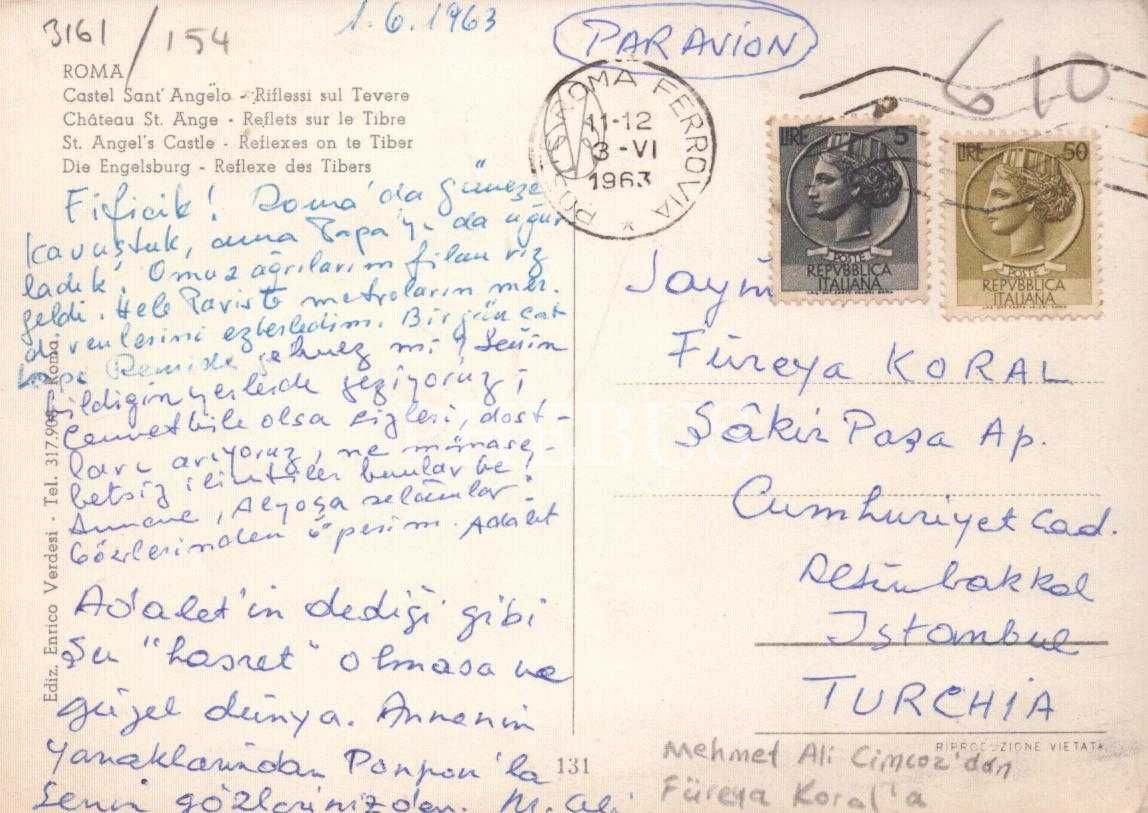 3161 / 154
1.6.1963
PAR AVION
610
ROMA
Castel Sant' Angelo - Riflessi sul Tevere
Château St. Ange - Reflets sur le Tibre
St. Angel's Castle - Reflexes on te Tiber
Die Engelsburg - Reflexe des Tibers
POSTE ROMA FERROVIA *
11-12
3-VI
1963
LIRE 5
POSTE
REPVBBLICA
ITALIANA
LIRE 50
POSTE
REPVBBLICA
ITALIANA
Fificik! Roma'da güneşe
kavuştuk, ama Papa'yı da uğur
ladık. Omuz ağrılarım filan vız
geldi. Hele Pariste metroların mer.
divenlerini ezberledim. Bir gün
gelmez mi? Senin
bildiğin yerlerde geziyoruz;
Cennet bile olsa sizleri, dost-
ları arıyoruz, ne münase-
betsiz illetiler bunlar be!
Annene, Alyoşa selâmlar.
Gözlerinden öperim. Adalet
Adalet'in dediği gibi
şu "hasret" olmasa ne
güzel dünya. Annenin
yanaklarından Ponpon'la
senin gözlerinizden. M. Ali
Sayın
Füreya KORAL
Şâkir Paşa Ap.
Cumhuriyet Cad.
İstanbul
TURCHIA
Ediz. Enrico Verdesi - Tel. 317.908 - Roma
131
RIPRODUZIONE VIETATA
Mehmet Ali Cimcoz'dan
Füreya Koral'a